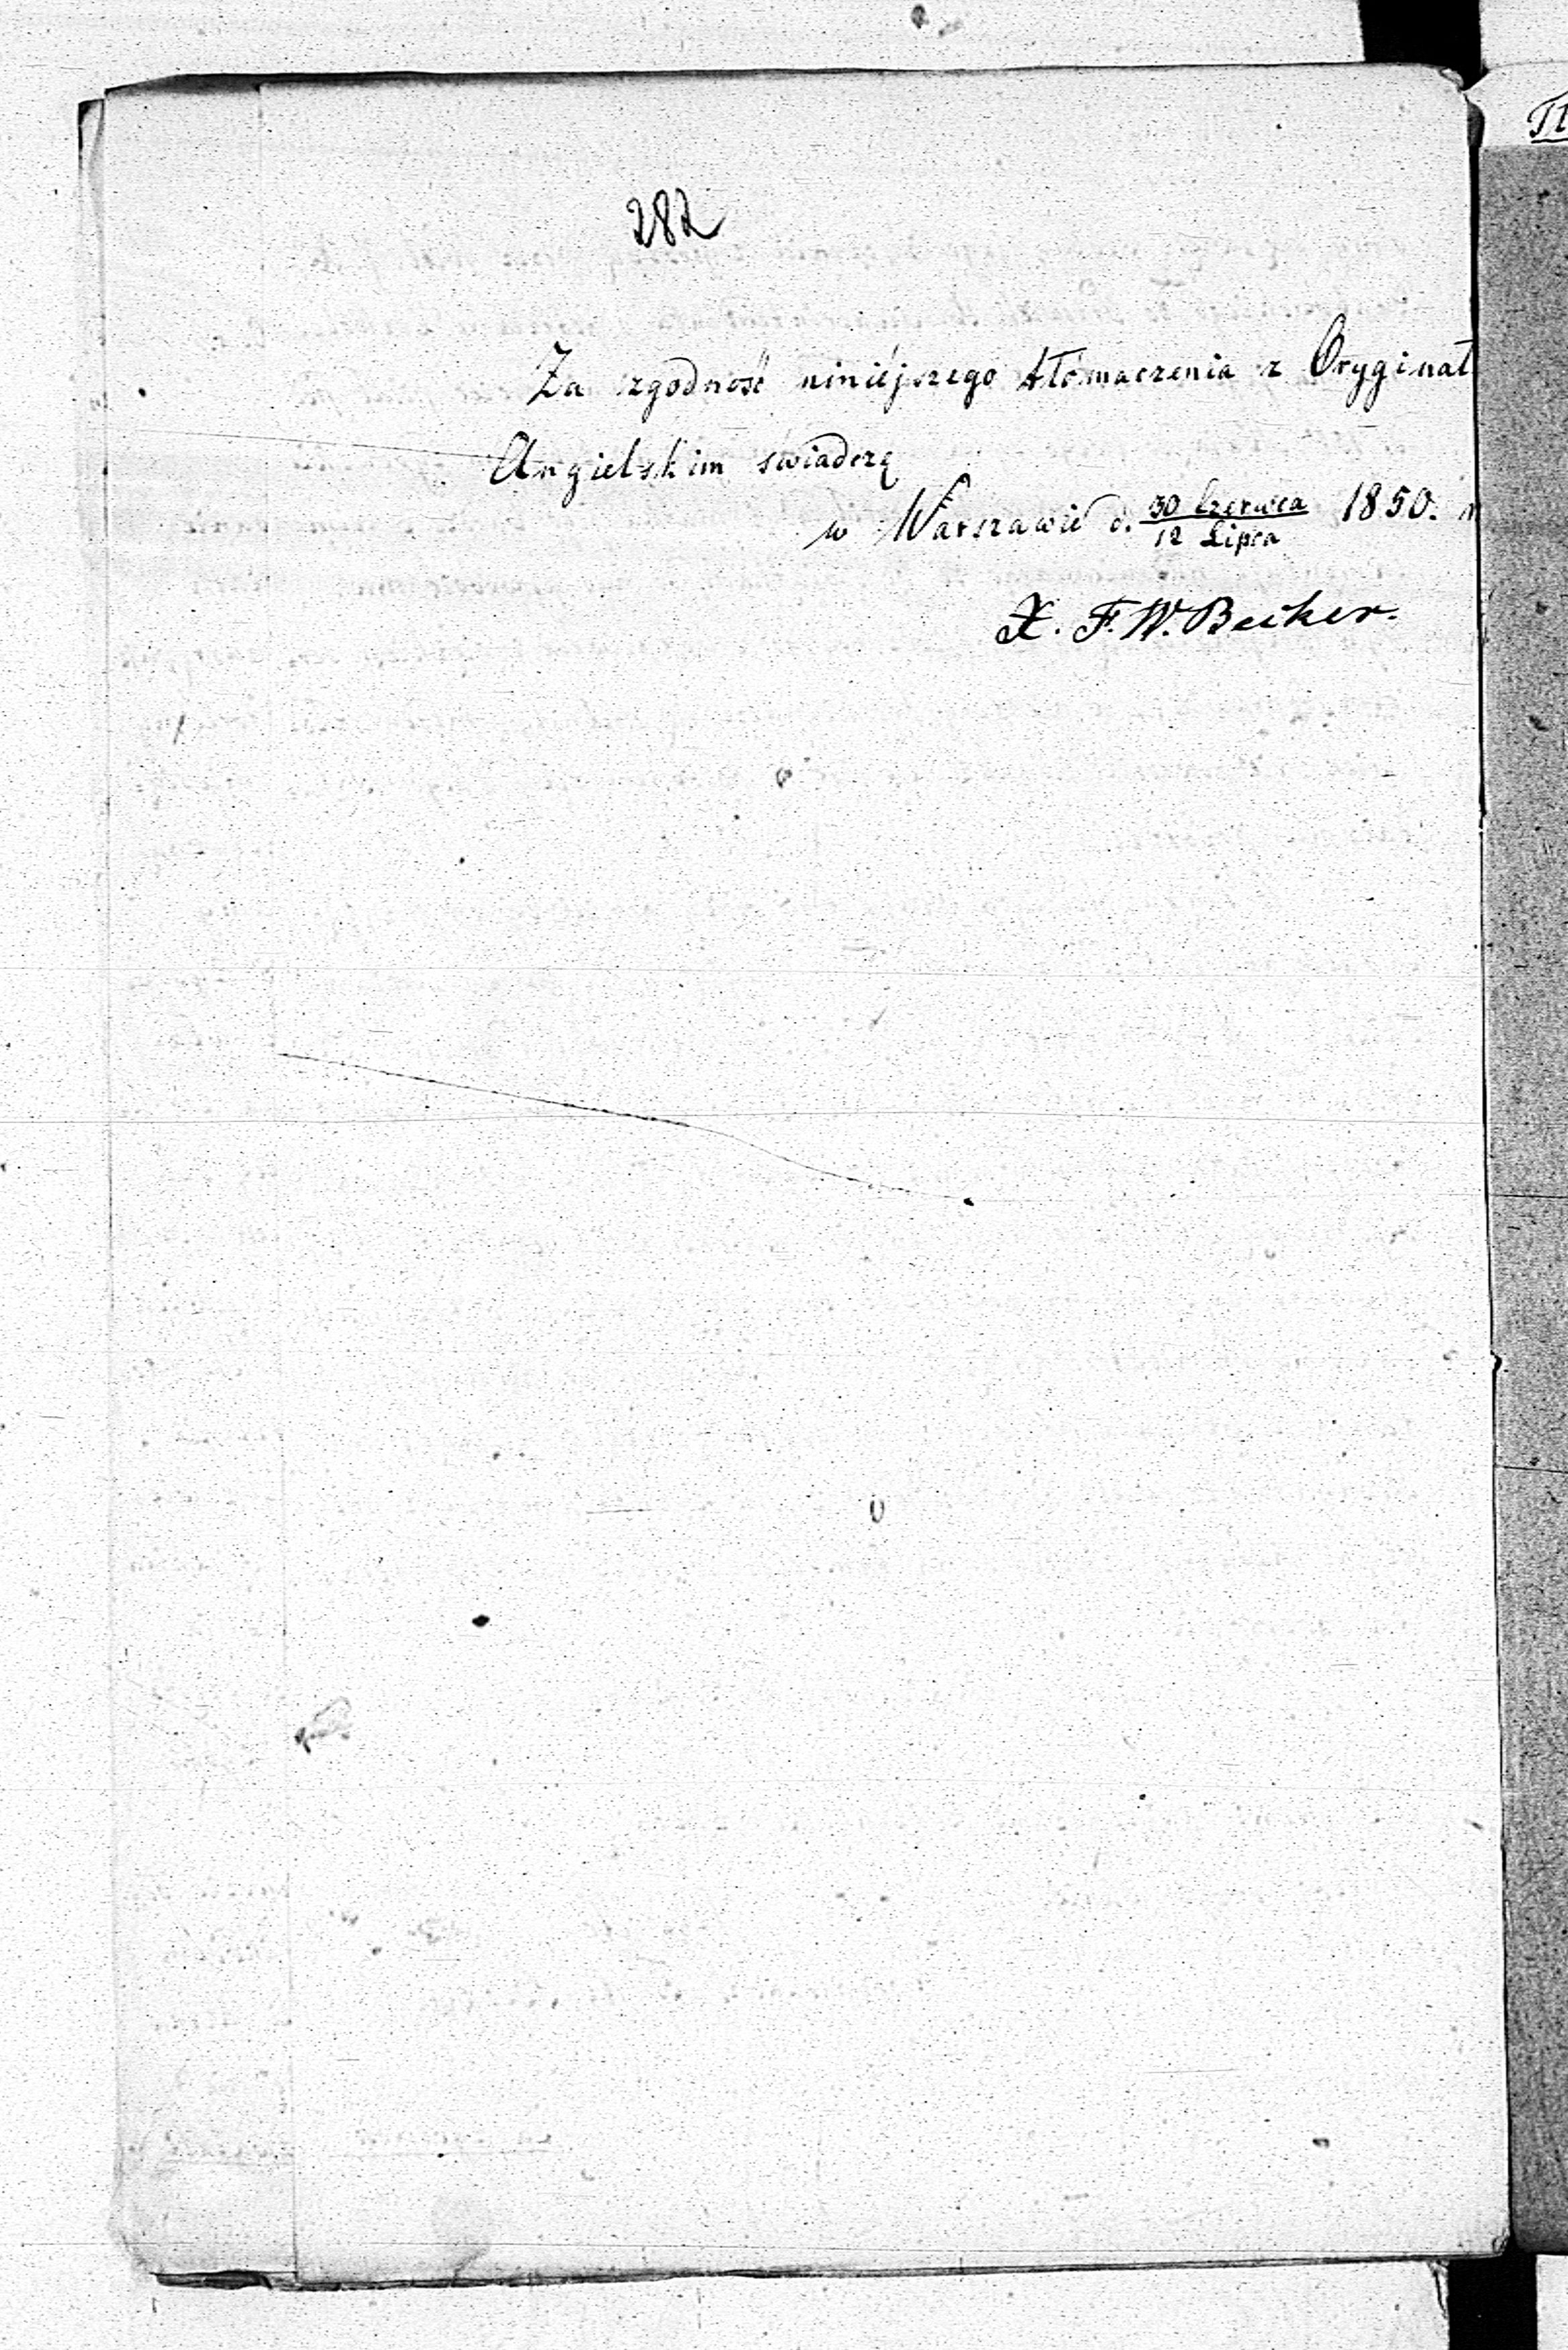 282
Za zgodność niniéjszego tłómaczenia z Oryginał
Angielskim świadczę
w Warszawie d. 30 Czerwca / 12 Lipca 1850. r
X. F. W. Becker.